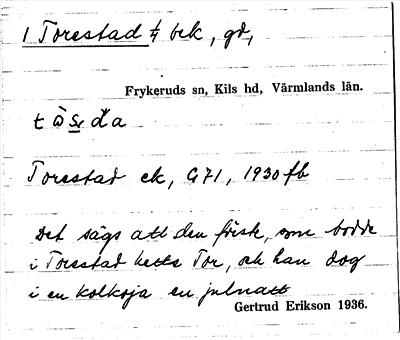 1 Torestad ⁴⁄ bek, gd,
Frykeruds sn, Kils hd, Värmlands län.
Torestad ek, G71, 1930 fb
Det sägs att den förste, som bodde
i Torestad hette Tor, och han dog
i en kolkoja en julnatt
Gertrud Erikson 1936.